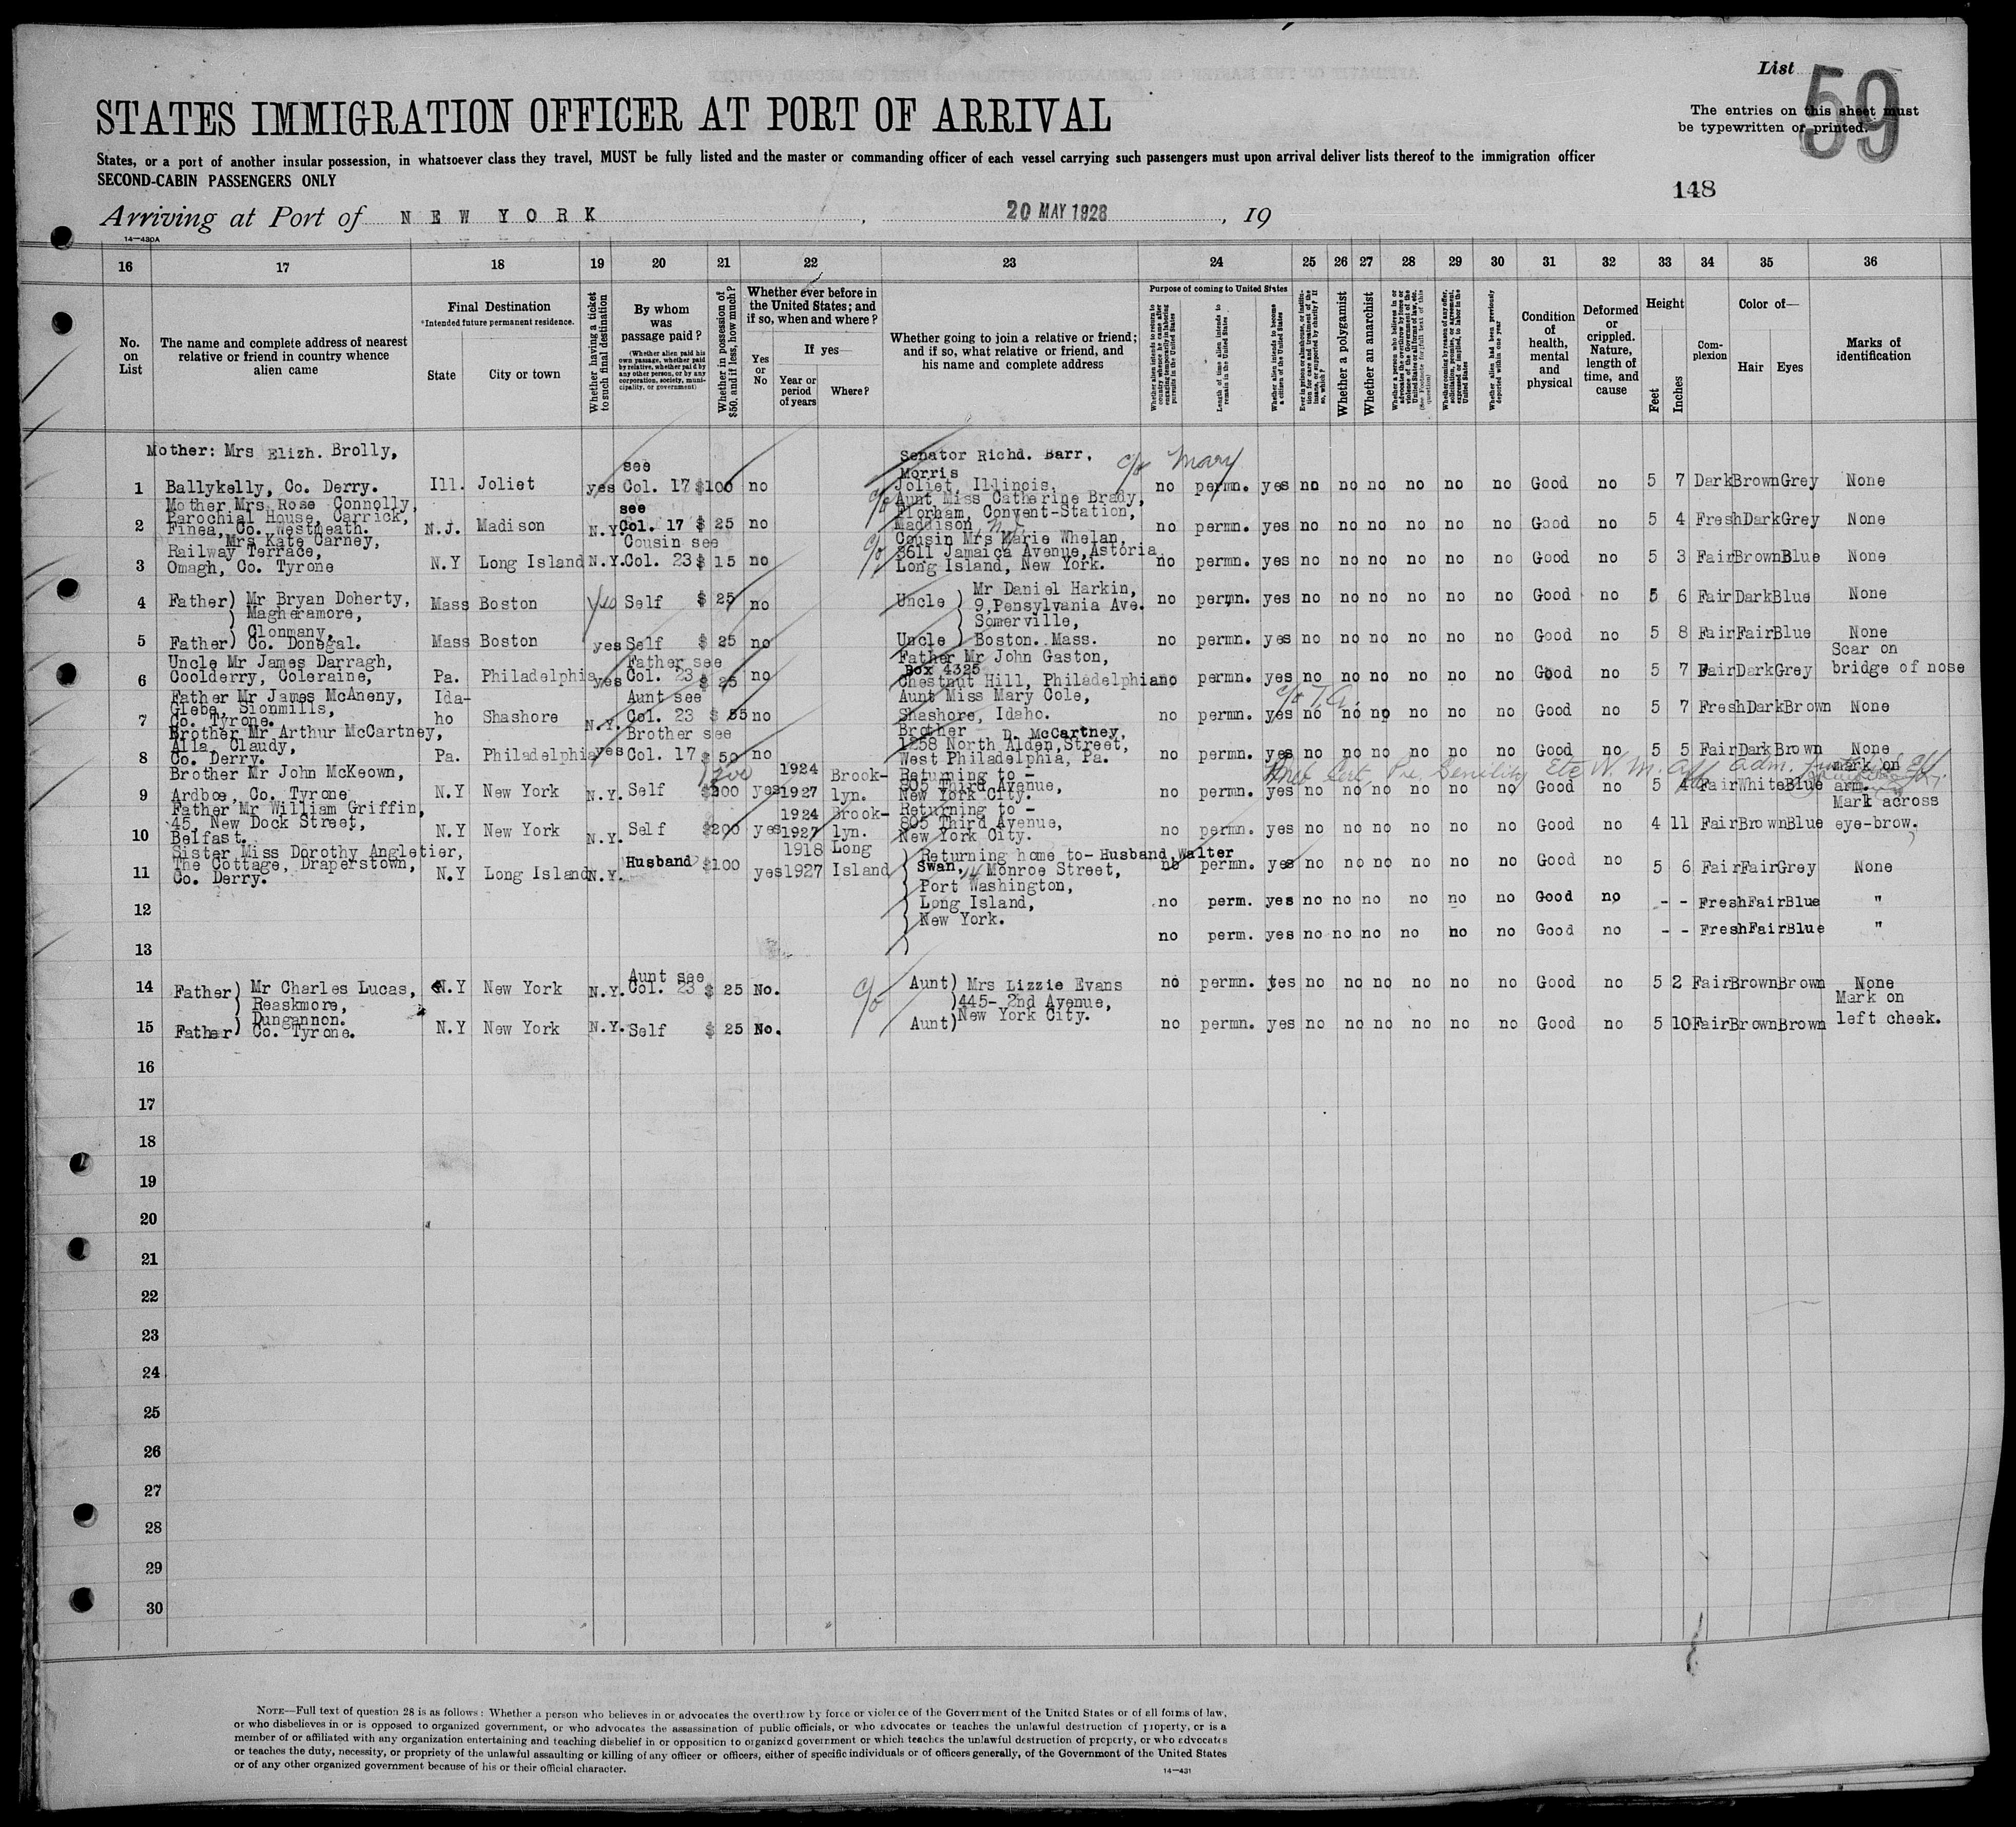 List
59
The entries on this sheet must
be typewritten or printed.
STATES IMMIGRATION OFFICER AT PORT OF ARRIVAL
States, or a port of another insular possession, in whatsoever class they travel, MUST be fully listed and the master or commanding officer of each vessel carrying such passengers must upon arrival deliver lists thereof to the immigration officer
SECOND-CABIN PASSENGERS ONLY
148
Arriving at Port of NEW YORK, 20 MAY 1928, 19
14—430A
16 17 18 19 20 21 22 23 24 25 26 27 28 29 30 31 32 33 34 35 36
No. on List
The name and complete address of nearest relative or friend in country whence alien came
Final Destination
*Intended future permanent residence.
State
City or town
Whether having a ticket to such final destination
By whom was passage paid?
(Whether alien paid his own passage, whether paid by relative, whether paid by any other person, or by any corporation, society, municipality, or government)
Whether in possession of $50, and if less, how much?
Whether ever before in the United States; and if so, when and where?
Yes or No
If yes—
Year or period of years
Where?
Whether going to join a relative or friend; and if so, what relative or friend, and his name and complete address
Purpose of coming to United States
Whether alien intends to return to country whence he came after engaging temporarily in laboring pursuits in the United States
Length of time alien intends to remain in the United States
Whether alien intends to become a citizen of the United States
Ever in prison or almshouse, or institution for care and treatment of the insane, or supported by charity? If so, which?
Whether a polygamist
Whether an anarchist
Whether a person who believes in or advocates the overthrow by force or violence of the Government of the United States or all forms of law, etc. (See Footnote for full text of this question)
Whether coming by reason of any offer, solicitation, promise, or agreement, expressed or implied, to labor in the United States
Whether alien had been previously deported within one year
Condition of health, mental and physical
Deformed or crippled. Nature, length of time, and cause
Height
Feet
Inches
Complexion
Color of—
Hair
Eyes
Marks of identification
1 Mother: Mrs Elizh. Brolly, Ballykelly, Co. Derry. Ill. Joliet yes see Col. 17 $100 no Senator Richd. Barr, Morris Joliet, Illinois. c/o Mary no permn. yes no no no no no no Good no 5 7 Dark Brown Grey None
2 Mother Mrs Rose Connolly, Parochial House, Carrick, Finea, Co. Westmeath. N.J. Madison N.Y. see Col. 17 $ 25 no c/o Aunt Miss Catherine Brady, Florham, Convent-Station, Maddison N.J. no permn. yes no no no no no no Good no 5 4 Fresh Dark Grey None
3 Mrs Kate Carney, Railway Terrace, Omagh, Co. Tyrone N.Y Long Island N.Y. Cousin see Col. 23 $ 15 no c/o Cousin Mrs Marie Whelan, 3611 Jamaica Avenue, Astoria Long Island, New York. no permn. yes no no no no no no Good no 5 3 Fair Brown Blue None
4 Father) Mr Bryan Doherty, Magheramore, Mass Boston Yes Self $ 25 no Uncle ) Mr Daniel Harkin, 9, Pensylvania Ave. no permn. yes no no no no no no Good no 5 6 Fair Dark Blue None
5 Father) Clonmany, Co. Donegal. Mass Boston yes Self $ 25 no Uncle ) Somerville, Boston. Mass. no permn. yes no no no no no no Good no 5 8 Fair Fair Blue None
6 Uncle Mr James Darragh, Coolderry, Coleraine, Pa. Philadelphia yes Father see Col. 23 $ 25 no Father Mr John Gaston, Box 4325 Chestnut Hill, Philadelphia no permn. yes no no no no no no Good no 5 7 Fair Dark Grey Scar on bridge of nose
7 Father Mr James McAneny, Glebe, Sionmills, Co. Tyrone. Ida-ho Shashore N.Y. Aunt see Col. 23 $ 35 no Aunt Miss Mary Cole, Shashore, Idaho. no permn. yes no no no no no no Good no 5 7 Fresh Dark Brown None
8 Brother Mr Arthur McCartney, Alla, Claudy, Co. Derry. Pa. Philadelphia yes Brother see Col. 17 $ 50 no Brother D. McCartney, 1258 North Alden, Street, West Philadelphia, Pa. no permn. yes no no no no no no Good no 5 5 Fair Dark Brown None
Med Cert. Pre. Senility Etc
9 Brother Mr John McKeown, Ardboe, Co. Tyrone N.Y New York N.Y. Self $200 yes 1924 1927 Brook-lyn. Returning to - 805 Third Avenue, New York City. no permn. yes no no no no no no Good no 5 4 Fair White Blue mark on arm.
10 Father Mr William Griffin, 45, New Dock Street, Belfast. N.Y New York N.Y. Self $200 yes 1924 1927 Brook-lyn. Returning to - 805 Third Avenue, New York City. no permn. yes no no no no no no Good no 4 11 Fair Brown Blue Mark across eye-brow.
11 Sister Miss Dorothy Angletier, The Cottage, Draperstown, Co. Derry. N.Y Long Island N.Y. Husband $100 yes 1918 1927 Long Island Returning home to- Husband, Walter Swan, 14 Monroe Street, Port Washington, Long Island, New York. no permn. yes no no no no no no Good no 5 6 Fair Fair Grey None
12 no perm. yes no no no no no no Good no - - Fresh Fair Blue "
13 no perm. yes no no no no no no Good no - - Fresh Fair Blue "
14 Father) Mr Charles Lucas, Reaskmore, N.Y New York N.Y. Aunt see Col. 23 $ 25 No. c/o Aunt) Mrs Lizzie Evans 445- 2nd Avenue, no permn. yes no no no no no no Good no 5 2 Fair Brown Brown None
15 Father) Dungannon. Co. Tyrone. N.Y New York N.Y. Self $ 25 No. Aunt) New York City. no permn. yes no no no no no no Good no 5 10 Fair Brown Brown Mark on left cheek.
16
17
18
19
20
21
22
23
24
25
26
27
28
29
30
NOTE—Full text of question 28 is as follows: Whether a person who believes in or advocates the overthrow by force or violence of the Government of the United States or of all forms of law,
or who disbelieves in or is opposed to organized government, or who advocates the assassination of public officials, or who advocates or teaches the unlawful destruction of property, or is a
member of or affiliated with any organization entertaining and teaching disbelief in or opposition to organized government or which teaches the unlawful destruction of property, or who advocates
or teaches the duty, necessity, or propriety of the unlawful assaulting or killing of any officer or officers, either of specific individuals or of officers generally, of the Government of the United States
or of any other organized government because of his or their official character.
14—431